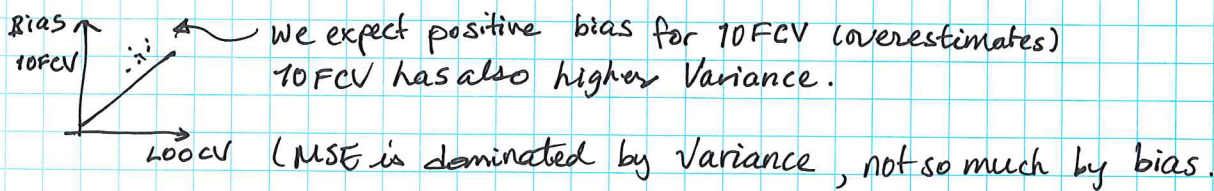 Bias
10FCV
We expect positive bias for 10FCV (overestimates)
10FCV has also higher Variance.
LOOCV (MSE is dominated by Variance, not so much by bias.